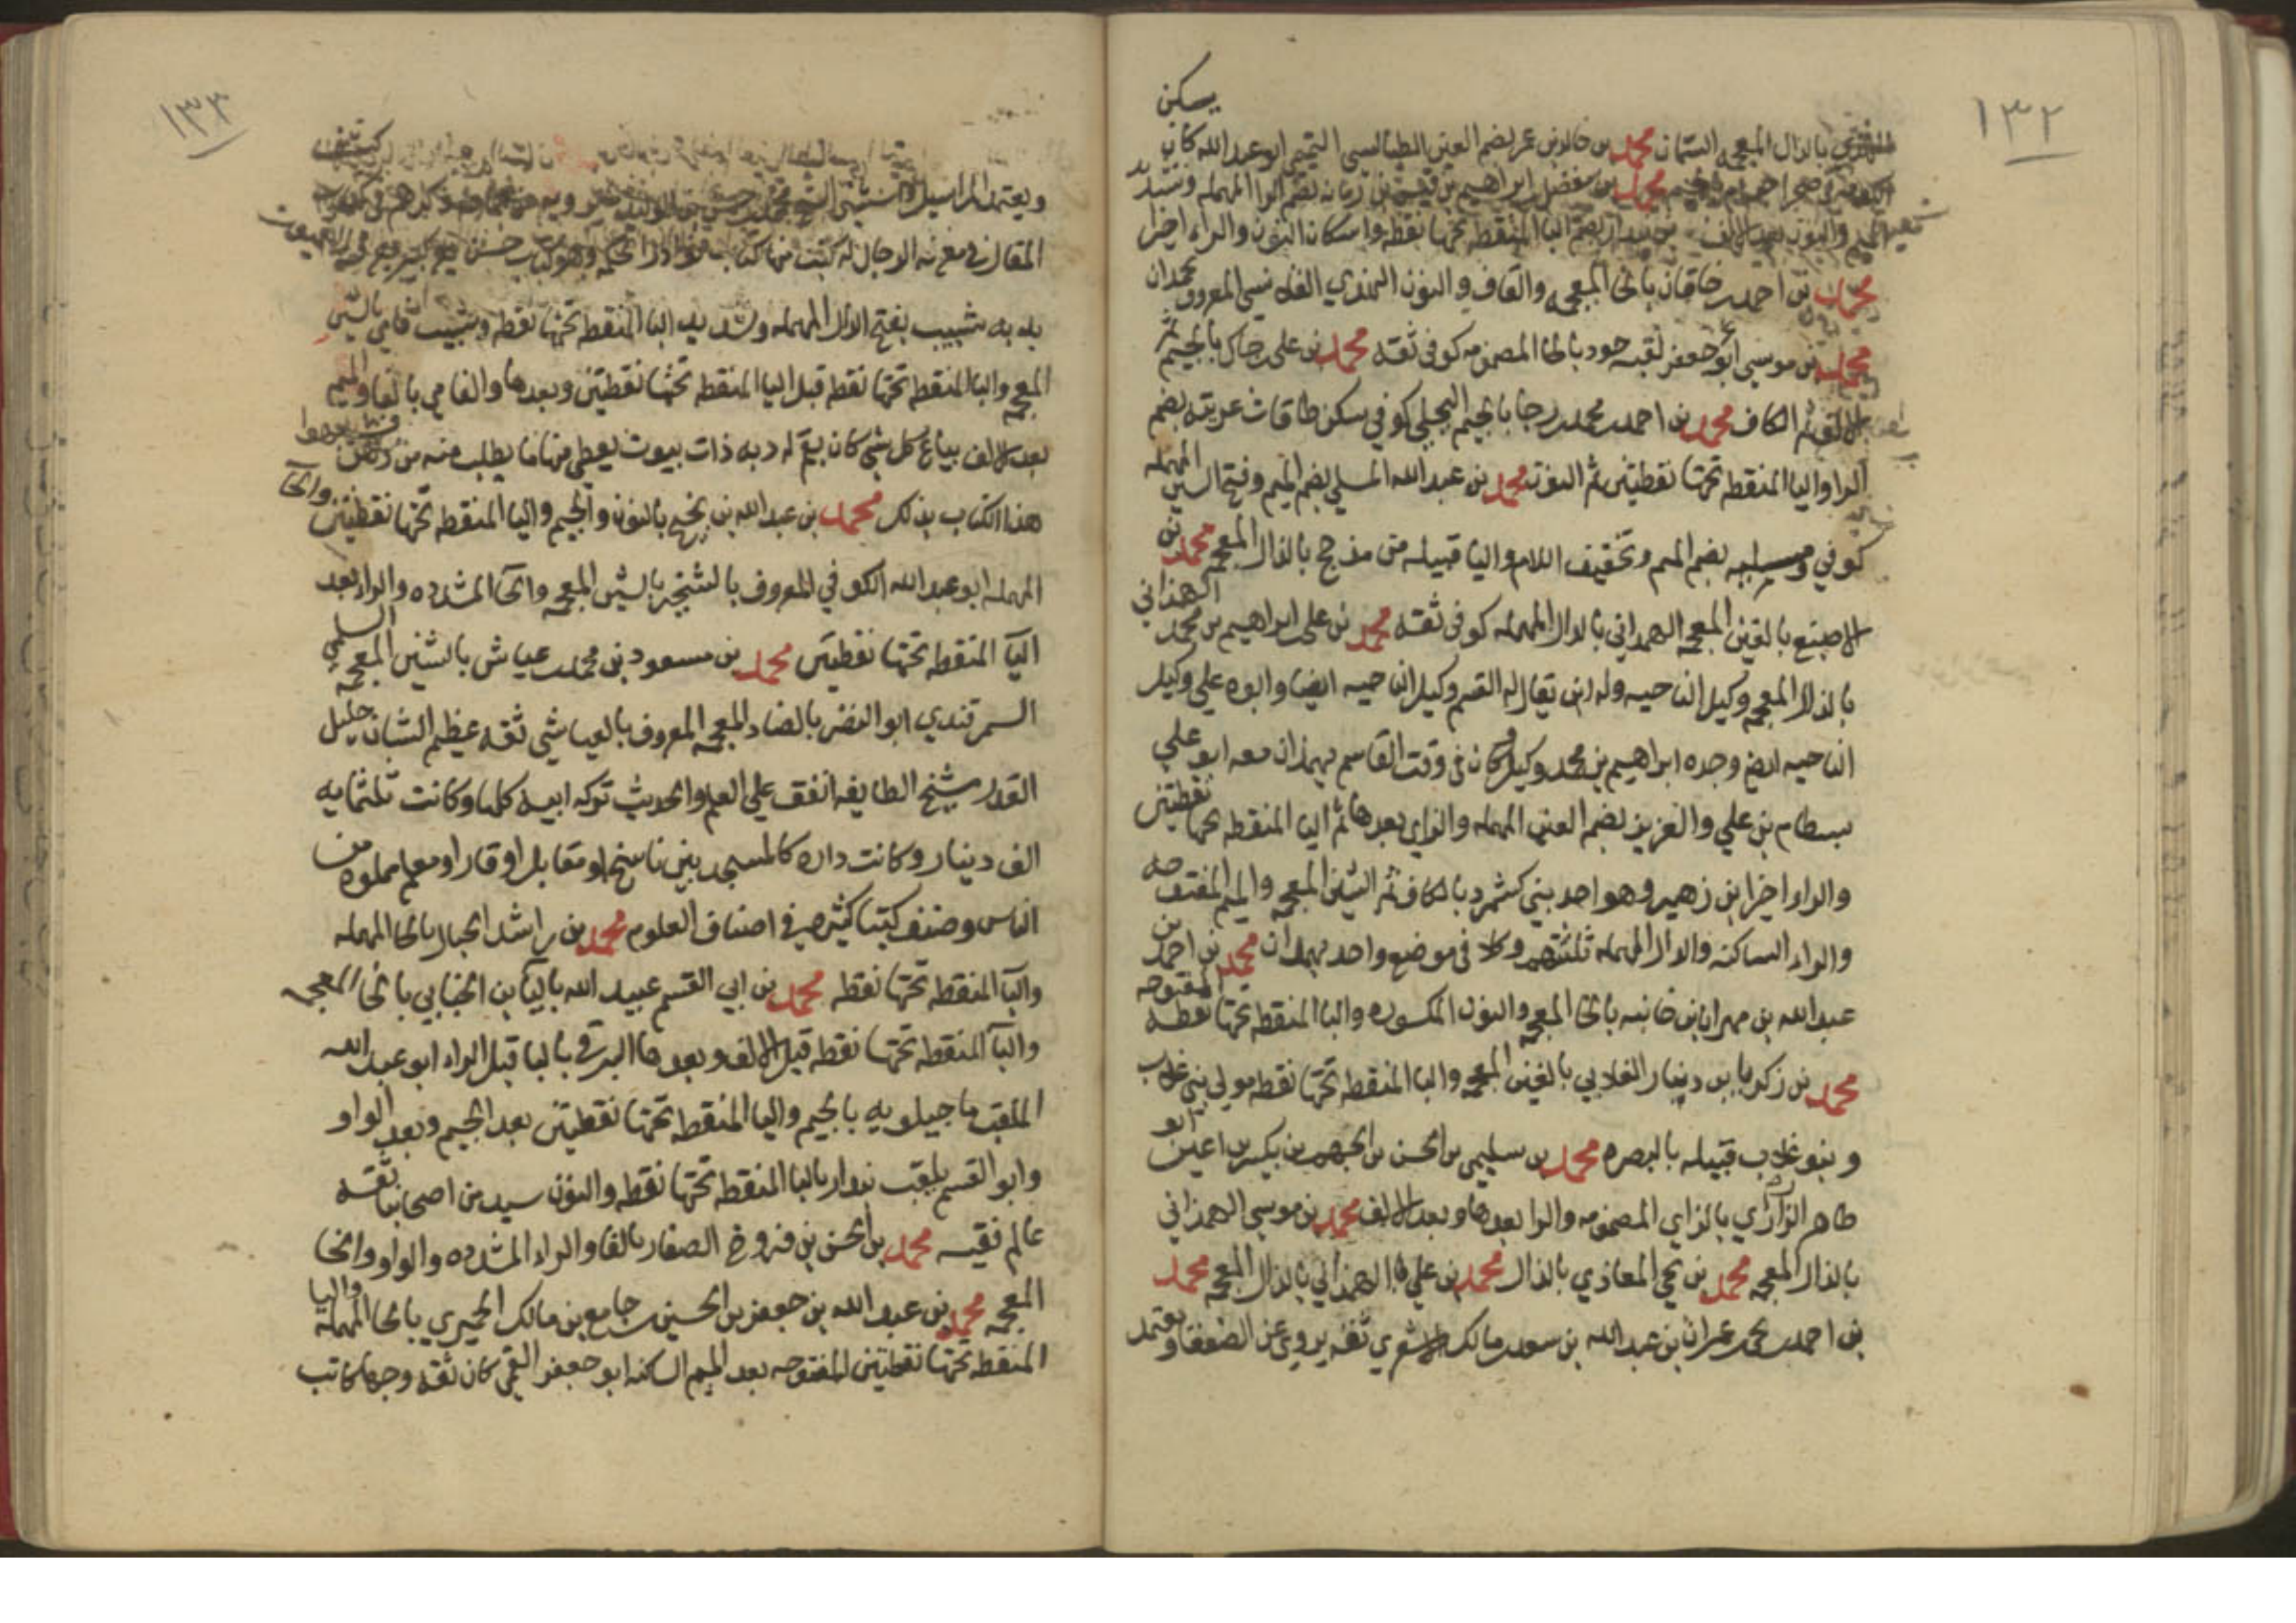 ١٣٢
يسكن
بالذال المعجمه السمان محمد بن خالد بن عمر بضم العين الطيالسي التميمي ابو عبد الله كان
محمد بن مفضل بن ابراهيم بن قيس بن رمانه بضم الراء المهمله وتشديد
الميم والنون بعد الالف بضم البا المنقطه تحتها نقطه واسكان النون والراء اخرا
محمد بن احمد بن خاقان بالخا المعجمه والقاف والنون النهدي القلانسي المعروف بحمدان
محمد بن موسى ابو جعفر لقبه خورا بالخا المضمومه كوفي ثقه محمد بن علي بن جاك بالجيم ثم
الالف ثم الكاف محمد بن احمد بن محمد بن رجا بالجيم البجلي كوفي سكن طاقات عرينه بضم
الرا واليا المنقطه تحتها نقطيتين ثم النون محمد بن عبد الله المسلي بضم الميم وفتح السين المهمله
كوفي ومسليه بضم الميم وتخفيف اللام واليا قبيله من مذحج بالذال المعجمه محمد بن
الاصبغ بالغين المعجمه الهمداني بالدال المهمله كوفي ثقه محمد بن علي بن ابراهيم بن محمد الهمذاني
بالذال المعجمه وكيل الناحيه وله ابن يقال له القسم وكيل الناحيه ايضا وابوه علي وكيل
الناحيه ايض وجده ابراهيم بن محمد وكيل وكان في وقت القاسم بهمذان معه ابو علي
بسطام بن علي والعزيز بضم العين المهمله والزاي بعدها ثم اليا المنقطه تحتها نقطيتين
والراء اخرا بن زهير وهو احد بني كشمرد بالكاف ثم الشين المعجمه والميم المفتوحه
والراء الساكنه والدال المهمله ثلثتهم وكلا في موضع واحد بهمدان محمد بن احمد بن
عبد الله بن مهران بن خانبه بالخا المعجمه والنون المكسوره والبا المنقطه تحتها نقطه المفتوحه
محمد بن زكريا بن دينار الغلابي بالغين المعجمه والبا المنقطه تحتها نقطه مولى بني غلاب
وبنو غلاب قبيله بالبصره محمد بن سليمن بن الحسن بن الجهم بن بكير بن اعين ابو
طاهر الزراري بالزاي المضمومه والرا بعدها وبعد الالف محمد بن موسى الهمذاني
بالذال المعجمه محمد بن يحي المعاذي بالذال محمد بن علي الهمذاني بالذال المعجمه محمد
بن احمد بن يحي بن عمران بن عبد الله بن سعد بن مالك الاشعري ثقه يروي عن الضعفا ويعتمد
١٣٣
ويعتمد المراسيل
المقال في معرفه الرجال له كتب منها كتاب نوادر الحكمه وهو كتاب حسن كبير
بدبه شبيب بفتح الدال المهمله وتشديد البا المنقطه تحتها نقطه وشبيب فامي بالشين
المعجمه والبا المنقطه تحتها نقطه قبل اليا المنقطه تحتها نقطيتين وبعدها والفامي بالفا والميم
بعد الالف بياع كل شي كان بقم له دبه ذات بيوت يعطي منها ما يطلب منه من دهن
هذا الكتاب بذلك محمد بن عبد الله بن نجيح بالنون والجيم واليا المنقطه تحتها نقطيتين والحا
المهمله ابو عبد الله الكوفي المعروف بالشخير بالشين المعجمه والخا المشدده والراء بعد
اليا المنقطه تحتها نقطيتين محمد بن مسعود بن محمد بن عياش بالشين المعجمه السلمي
السمرقندي ابو النضر بالضاد المعجمه المعروف بالعياشي ثقه عظيم الشان جليل
القدر شيخ الطايفه انفق على العلم والحديث تركه ابيه كلها وكانت ثلثمايه
الف دينار وكانت داره كالمسجد بين ناسخ او مقابل او قارا ومعلم مملوه من
الناس وصنف كتبا كثيره في اصناف العلوم محمد بن راشد الحبال بالحا المهمله
والبا المنقطه تحتها نقطه محمد بن ابي القسم عبيد الله باليا بن الخبابي بالخا المعجمه
والبا المنقطه تحتها نقطه قبل الالف وبعدها البرقي بالبا قبل الراء ابو عبد الله
الملقب ماجيلويه بالجيم واليا المنقطه تحتها نقطيتين بعد الجيم وبعد الواو
وابو القسم يلقب بندار بالبا المنقطه تحتها نقطه والنون سيد من اصحابنا ثقه
عالم فقيه محمد بن الحسن بن فروخ الصفار بالفا والراء المشدده والواو والخا
المعجمه محمد بن عبد الله بن جعفر بن الحسين بن جامع بن مالك الحميري بالحا المهمله واليا
المنقطه تحتها نقطيتين المفتوحه بعد الميم الساكنه ابو جعفر القمي كان ثقه وجها كاتب